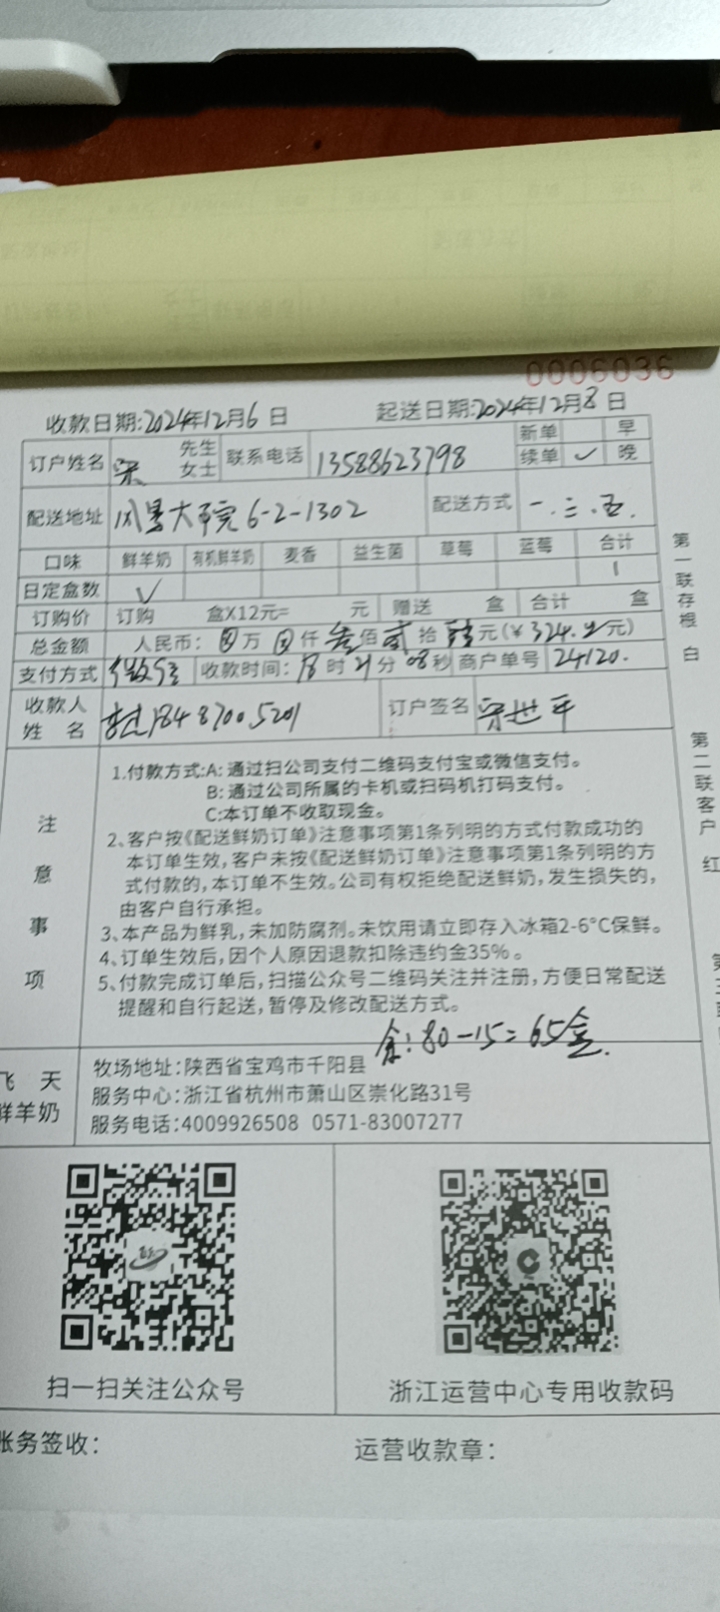 0006036
收款日期:2024年12月6日 起送日期:2024年12月8日
订户姓名 宋 先生 女士 联系电话 13588623798 新单 早 续单 ✓ 晚
配送地址 风景大院6-2-1302 配送方式 一.三.五.
口味 鲜羊奶 有机鲜羊奶 麦香 益生菌 草莓 蓝莓 合计
日定盒数 ✓ 1
订购价 订购 盒X12元= 元 赠送 盒 合计 盒
总金额 人民币: 万 仟 叁佰 贰拾 元(¥324. 元)
支付方式 收款时间:18时21分08秒 商户单号 24120.
收款人姓名 18487005201 订户签名 宋世平
注意事项
1.付款方式:A: 通过扫公司支付二维码支付宝或微信支付。
B: 通过公司所属的卡机或扫码机打码支付。
C:本订单不收取现金。
2、客户按《配送鲜奶订单》注意事项第1条列明的方式付款成功的
本订单生效,客户未按《配送鲜奶订单》注意事项第1条列明的方
式付款的,本订单不生效。公司有权拒绝配送鲜奶,发生损失的,
由客户自行承担。
3、本产品为鲜乳,未加防腐剂。未饮用请立即存入冰箱2-6°C保鲜。
4、订单生效后,因个人原因退款扣除违约金35%。
5、付款完成订单后,扫描公众号二维码关注并注册,方便日常配送
提醒和自行起送,暂停及修改配送方式。
余:80-15=65盒.
飞天
鲜羊奶
牧场地址:陕西省宝鸡市千阳县
服务中心:浙江省杭州市萧山区崇化路31号
服务电话:4009926508 0571-83007277
扫一扫关注公众号 浙江运营中心专用收款码
账务签收: 运营收款章:
第一联存根 白
第二联客户 红